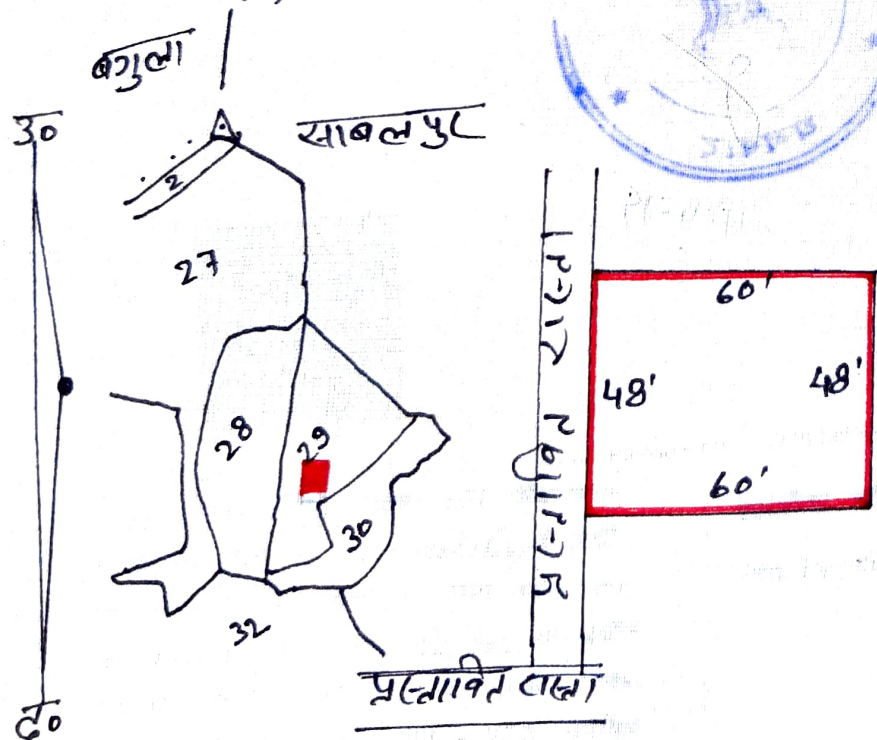 बगुला
उ०
साबलपुर
2
27
28
29
30
32
द०
प्रस्तावित रास्ता
60'
48'
48'
60'
प्रस्तावित रास्ता